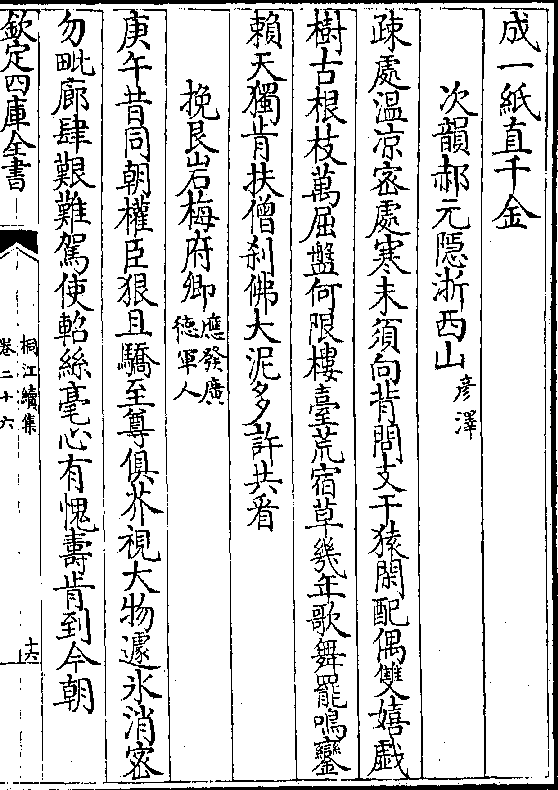 成一紙直千金
次韻郝元隱浙西山彦澤
疎處温凉宻處寒未須向背問支干猿閑配偶雙嬉戯
樹古根枝萬屈盤何限樓臺荒宿草幾年歌舞罷鳴鑾
賴天獨肯扶僧刹佛大泥多許共㸔
挽艮岩梅府卿應發廣德軍人
庚午昔同朝權臣狠且驕至尊俱芥視大物遽氷消宻
勿毗廊肆艱難駕使軺絲毫心有愧壽肯到今朝
欽定四庫全書
桐江續集
卷二十六
十六